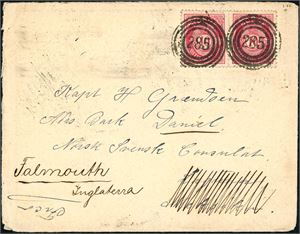 285 285
Kapt H Grændsen
Nrs. Bark Daniel
Norsk Svensk Consulat
Falmouth
Inglaterra